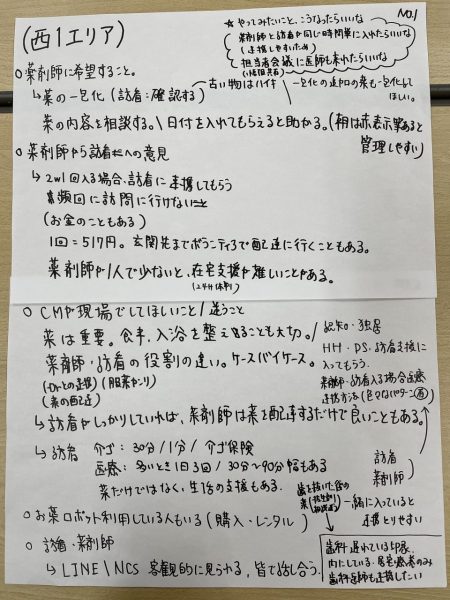 No.1
(西1エリア)
★ やってみたいこと、こうなったらいいな
薬剤師と訪看が同じ時間軍に入れたらいいな
(連携しやすいため)
担当者会議に医師も来れたらいいな
(情報共有)
○薬剤師に希望すること。
↳薬の一包化(訪看:確認する)
古い物はハイキ
一包化の追加の薬も一包化してほしい。
薬の内容を相談する。\日付を入れてもらえると助かる。(朝は赤表示等あると
管理しやすい)
○薬剤師から訪看さんへの意見
↳2w1回入る場合、訪看に連携してもらう
頻回に訪問に行けない
(お金のこともある)
1回=517円。玄関先までボランティアで配達に行くこともある。
薬剤師が1人で少ないと、在宅支援が難しいことがある。
(24H体制)
○CMや現場でしてほしいこと/違うこと
薬は重要。食事、入浴を整えることも大切。/
薬剤師・訪看の役割の違い。ケースバイケース。
(Drとの連携)(服薬カンリ)
(薬の配達)
認知・独居
HH・DS・訪看支援に
入ってもらう。
薬剤師・訪看入る場合医療
連携方法(色々なパターン有)
↳訪看がしっかりしていれば、薬剤師は薬を配達するだけで良いこともある。
↳訪看 介ゴ:30分/1分/介ゴ保険
医療:多いとき1日3回/30分〜90分幅もある
薬だけではなく、生活の支援もある。
訪看
薬剤師
歯を抜いた後の
薬
一緒に入っていると
連携とりやすい
○お薬ロボット利用している人もいる(購入・レンタル)
○訪看・薬剤師
↳LINE\NCS 客観的に見られる、皆で話し合う。
歯科 遅れている印象
内にしている・居宅療養のみ
歯科医師も連携したい